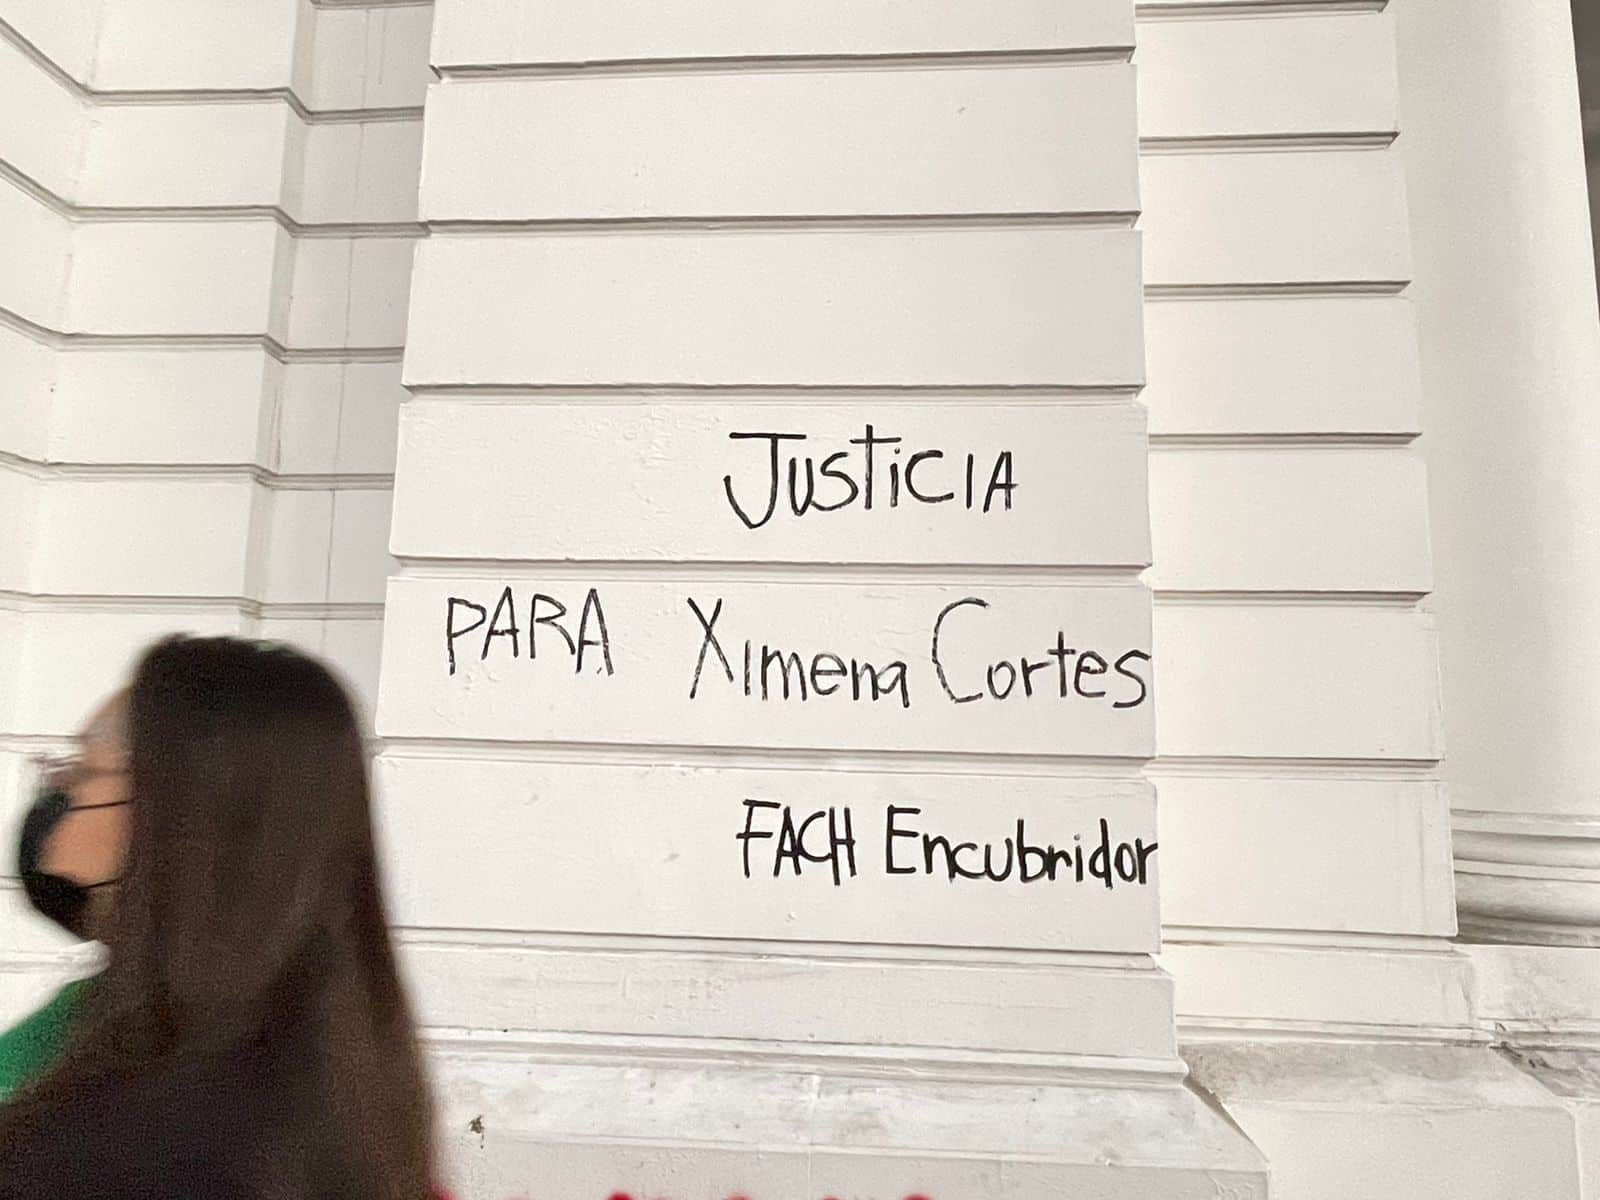 JUSTICIA
PARA XImena Cortes
FACH Encubridor